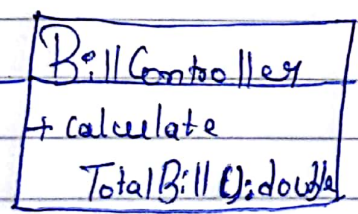 BillController
+ calculate
TotalBill(): double